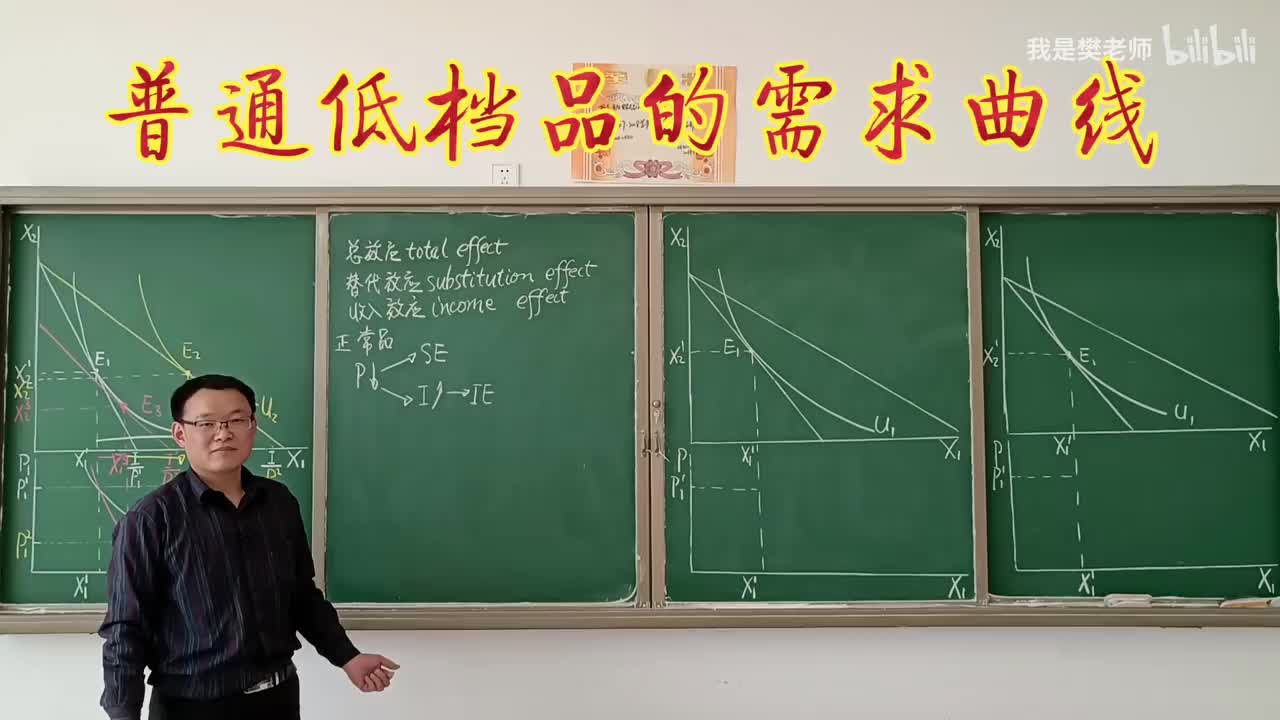 我是樊老师 bilibili
普通低档品的需求曲线
X₂
E₁
E₂
X₂¹
X₂²
X₂³
E₃
U₂
P₁
X₁¹
X₁³
I/P₁¹
X₁
P₁¹
P₁²
X₁¹
总效应 total effect
替代效应 substitution effect
收入效应 income effect
正常品
P↓ → SE
→ I↑ → IE
X₂
X₂¹
E₁
U₁
P₁
X₁¹
X₁
P₁¹
X₁¹
X₁
X₂
X₂¹
E₁
U₁
P₁
X₁¹
X₁
P₁¹
X₁¹
X₁